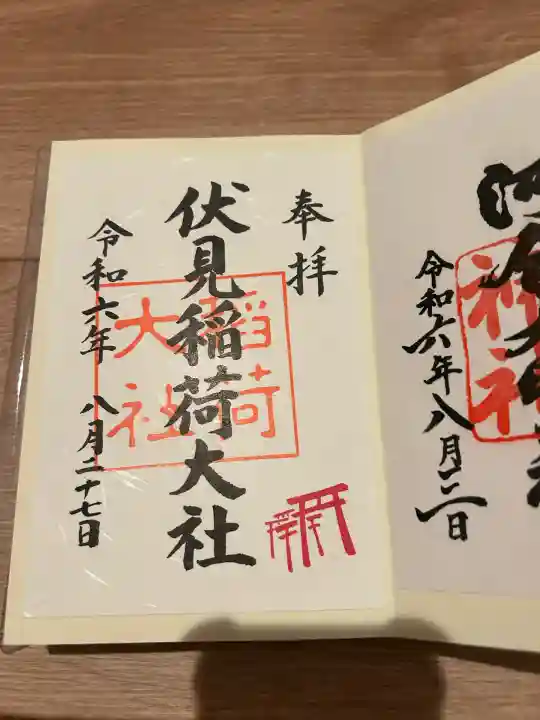 奉拝
伏見稲荷大社
稲荷
大社
令和六年 八月二十七日
令和六年八月二日